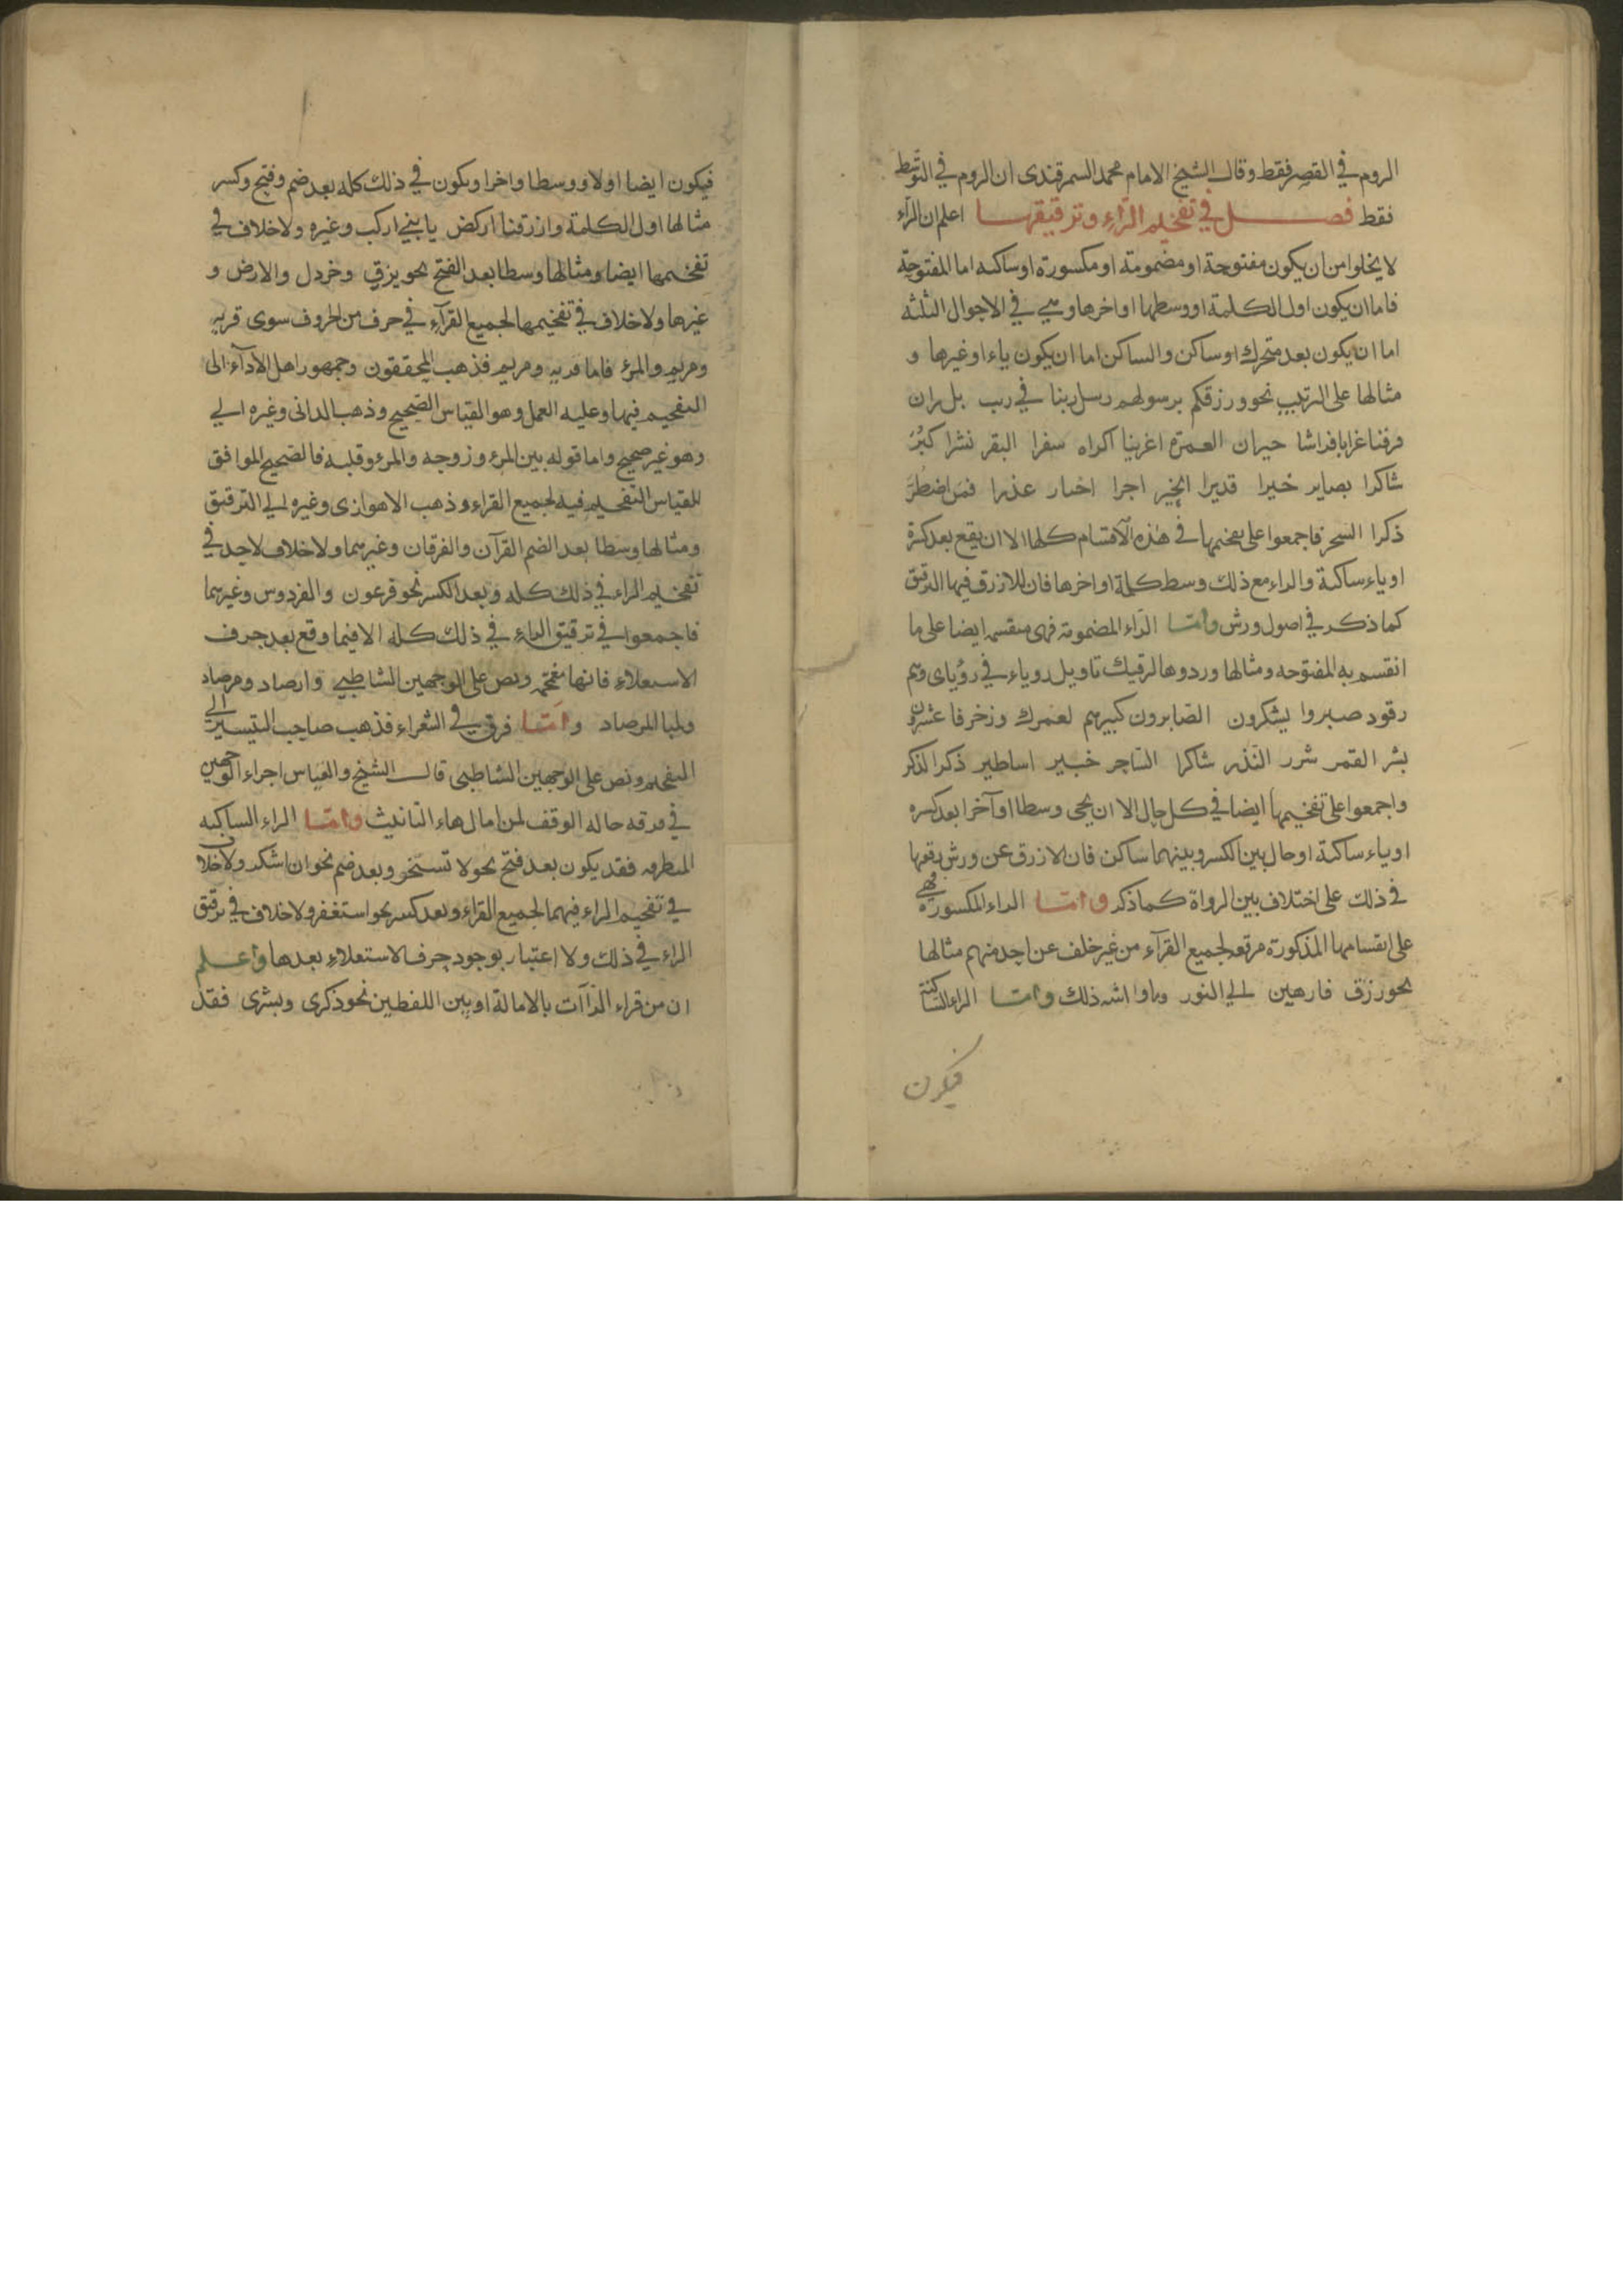 الروم في القصر فقط وقال الشيخ الامام محمد السمرقندى ان الروم في التوسط
فقط فصل في تفخيم الراء وترقيقها اعلم ان الراء
لا يخلوا من ان يكون مفتوحة او مضمومة او مكسورة او ساكنه اما المفتوحة
فاما ان يكون اول الكلمة او وسطها او اخرها وهي في الاحوال الثلثه
اما ان يكون بعد متحرك او ساكن والساكن اما ان يكون ياء او غيرها و
مثالها على الترتيب نحو ورزقكم برسولهم رسل ربنا في رب بل ران
فرقنا غرابا فراشا حيران العمرة اغرينا اكراه سفرا البقر نشرا كبُرَ
شاكرا بصاير خيرا قديرا الخير اجرا عذرا فمن اضطُرَّ
ذكرا السحر فاجمعوا على تفخيمها في هذه الاقسام كلها الا ان يقع بعد كسرة
او ياء ساكنة والراء مع ذلك وسط كلمة او اخرها فان للازرق فيها الترقيق
كما ذكر في اصول ورش واما الراء المضمومة فهى منقسمه ايضا على ما
انقسم به المفتوحه ومثالها وردوها لرقيك تاويل روياء في رؤياى وهم
رقود صبروا يشكرون الصابرون كبيرهم لعمرك وزخرفا عشرون
بشر القمر شرر النذر شاكرا الساحر خبير اساطير ذكرا الذكر
واجمعوا على تفخيمها ايضا في كل حال الا ان يجى وسطا او آخرا بعد كسره
او ياء ساكنة او حال بين الكسر وبينهما ساكن فان الازرق عن ورش رققها
في ذلك على اختلاف بين الرواة كما ذكر واما الراء المكسورة فهي
على اقسامها المذكورة مرققه لجميع القرآء من غير خلف عن احد منهم مثالها
نحو رزق فارهين الي النور وما اشبه ذلك واما الراء الساكنة
فيكون
فيكون ايضا اولا ووسطا واخرا ويكون في ذلك كله بعد ضم وفتح وكسر
مثالها اول الكلمة وارزقنا اركض يا بني اركب وغيره ولا خلاف في
تفخيمها ايضا ومثالها وسطا بعد الفتح نحو برق وخردل والارض و
غيرها ولا خلاف في تفخيمها لجميع القرآء في حرف من الحروف سوى قريه
ومريم والمرء فاما قريه ومريم فذهب المحققون وجمهور اهل الادآء الى
التفخيم فيها وعليه العمل وهو القياس الصحيح وذهب الدانى وغيره الي
وهو غير صحيح واما قوله بين المرء وزوجه والمرء وقلبه فالصحيح الموافق
للقياس التفخيم فيه لجميع القراء وذهب الاهوازى وغيره الي الترقيق
ومثالها وسطا بعد الضم القرآن والفرقان وغيرهما ولا خلاف لاحد في
تفخيم الراء في ذلك كله وبعد الكسر نحو فرعون والفردوس وغيرهما
فاجمعوا في ترقيق الراء في ذلك كله الا فيما وقع بعد حرف
الاستعلاء فانها مفخمه ونص على الوجهين الشاطبي وارصاد ومرصاد
ولبا المرصاد واما فرق في الشعراء فذهب صاحب التيسير الي
التفخيم ونص على الوجهين الشاطبي قال الشيخ والقياس اجراء الوجهين
في فرقه حاله الوقف لمن امال هاء التانيث واما الراء الساكنه
المتطرفه فقد يكون بعد فتح نحو لا تستخر وبعد ضم نحو ان اشكر ولا خلاف
في تفخيم الراء فيهما لجميع القراء وبعد كسر نحو استغفر ولا خلاف في ترقيق
الراء في ذلك ولا اعتبار بوجود حرف الاستعلاء بعدها واعلم
ان من قراء الرّاآت بالامالة او بين اللفظين نحو ذكرى وبشرى فقد